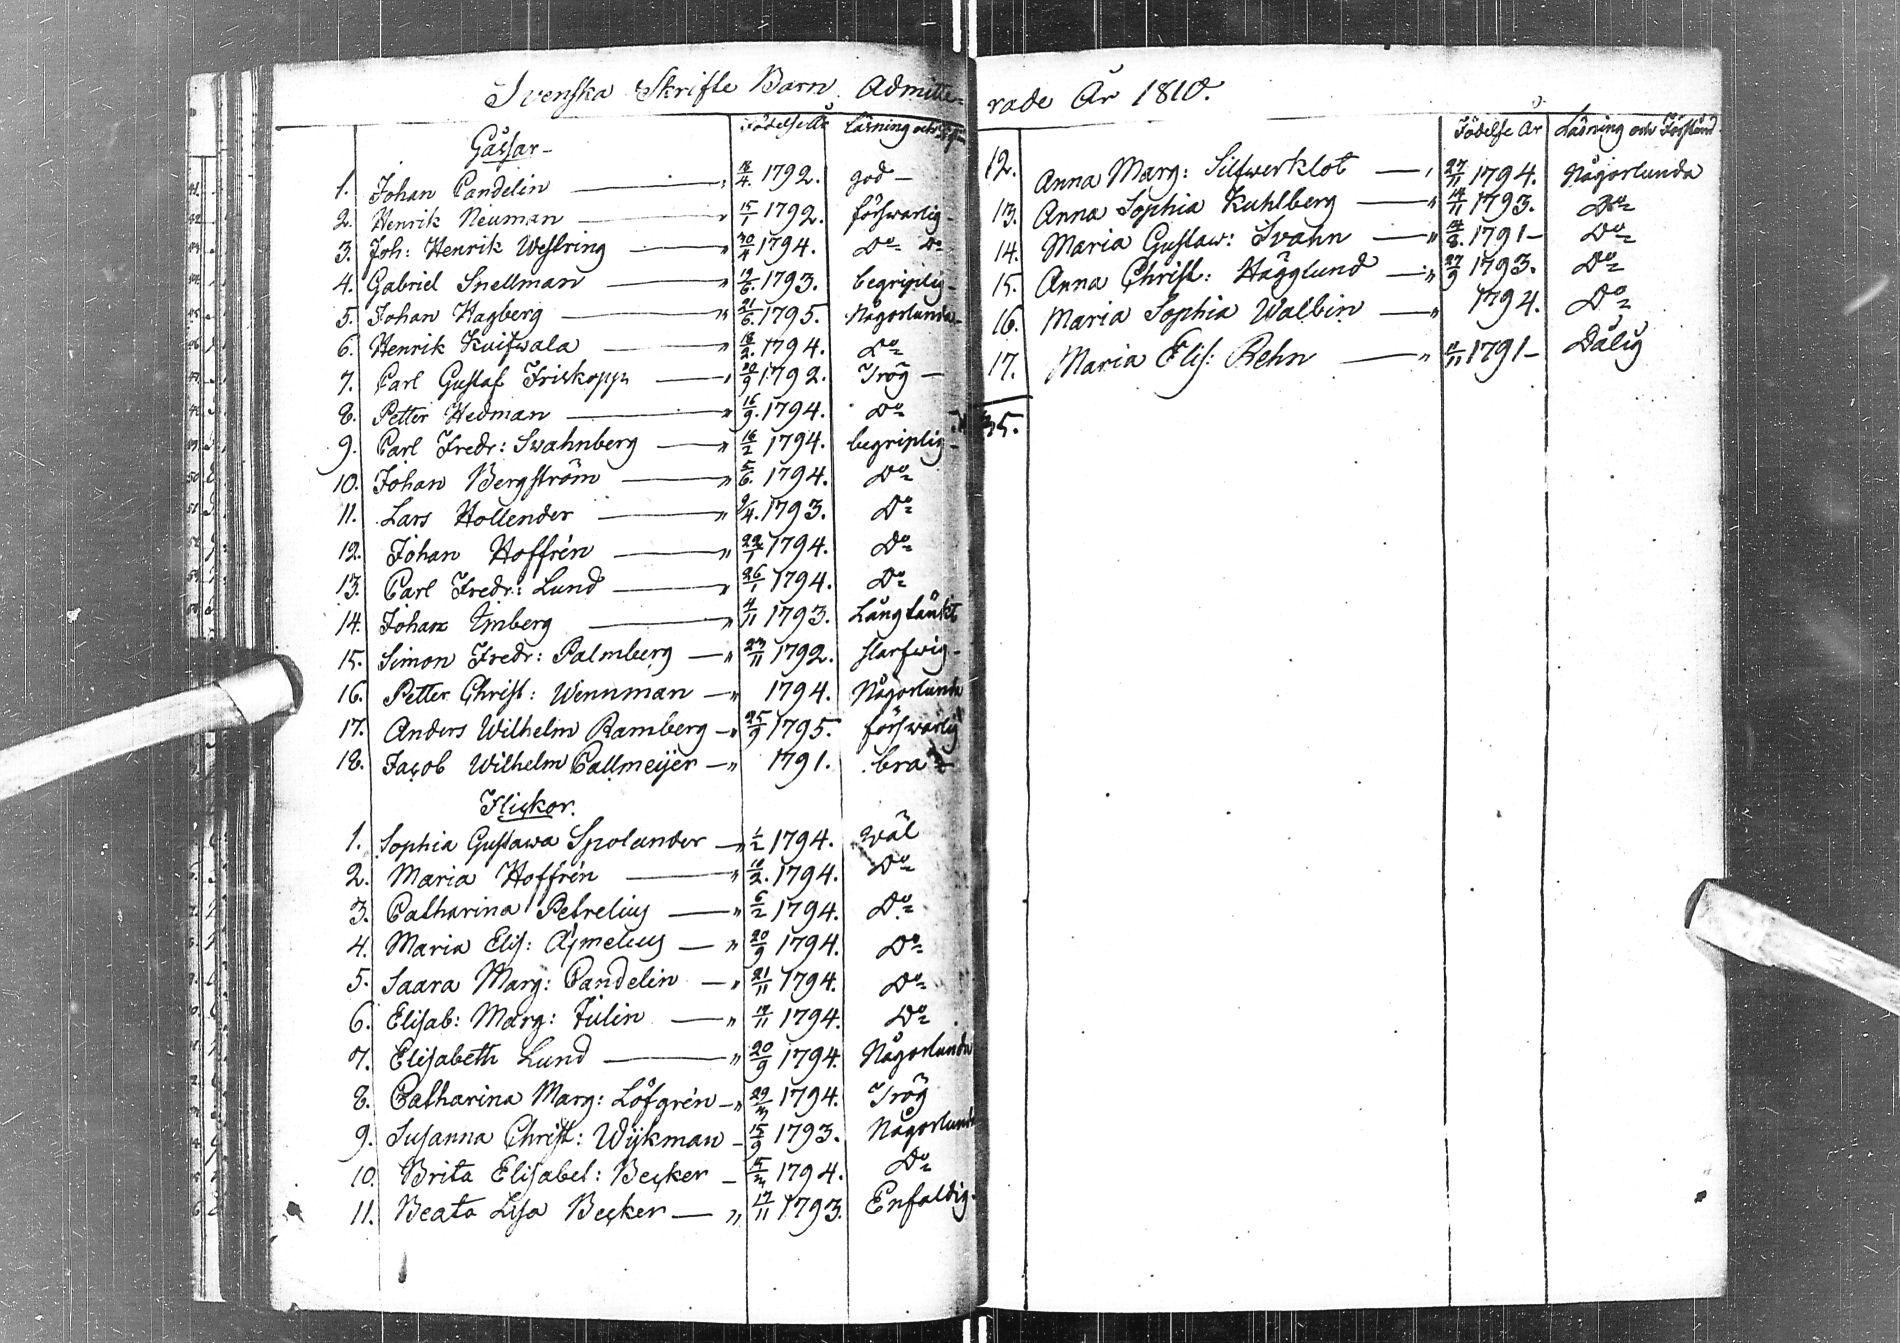 Svenska Skrifte Barn Admitte=
Gåssar – Födelse År Läsning och
1. Johan Candelin 18/4. 1792. god –
2. Henrik Neuman 15/1 1792. försvarlig –
3. Joh: Henrik Westring 1794. Do Do
4. Gabriel Snellman 1793. begriplig –
5. Johan Hagberg 21/6. 1795. Någorlunda –
6. Henrik Kuifwala 18/2. 1794. Do
7. Carl Gustaf Friskopp 1792. Trög –
8. Petter Hedman 16/9. 1794. Do
9. Carl Fredr: Svahnberg 16/2 1794. begriplig –
10. Johan Bergström 5/6. 1794. Do
11. Lars Hollender 9/4. 1793. Do
12. Johan Hoffrén 1794. Do
13. Carl Fredr: Lund 26/1 1794. Do
14. Johan Imberg 4/11 1793. Långtänkt
15. Simon Fredr: Palmberg 23/11 1792. slarfwig –
16. Petter Christ: Wennman 1794. Någorlunda
17. Anders Wilhelm Ramberg 25/9 1795. försvarlig
18. Jacob Wilhelm Callmeijer 1791. bra
Flickor.
1. Sophia Gustawa Spolander 1/2 1794. Wäl
2. Maria Hoffrén 10/2. 1794. Do
3. Catharina Petrelius 6/2 1794. Do
4. Maria Elis: Aÿmelius 20/9 1794. Do
5. Saara Marg: Candelin 21/11 1794. Do
6. Elisab: Marg: Julin 1794. Do
7. Elisabeth Lund 20/9 1794. Någorlunda
8. Catharina Marg: Löfgrén 29/3 1794. Trög
9. Susanna Christ: Wijkman 15/9 1793. Någorlunda
10. Brita Elisabet: Becker 1794. Do
11. Beata Lisa Becker 17/11 1793. Enfaldig.
rade År 1810.
Födelse År Läsning och Förstånd
12. Anna Marg: Silfwerklot 27/11 1794. Någorlunda
13. Anna Sophia Kuhlberg 14/11 1793. Do
14. Maria Gustaw: Svahn 1791 – Do
15. Anna Christ: Hägglund 27/9 1793. Do
16. Maria Sophia Walbin 1794. Do
17. Maria Elis: Rehn 1791 – Dålig
35.